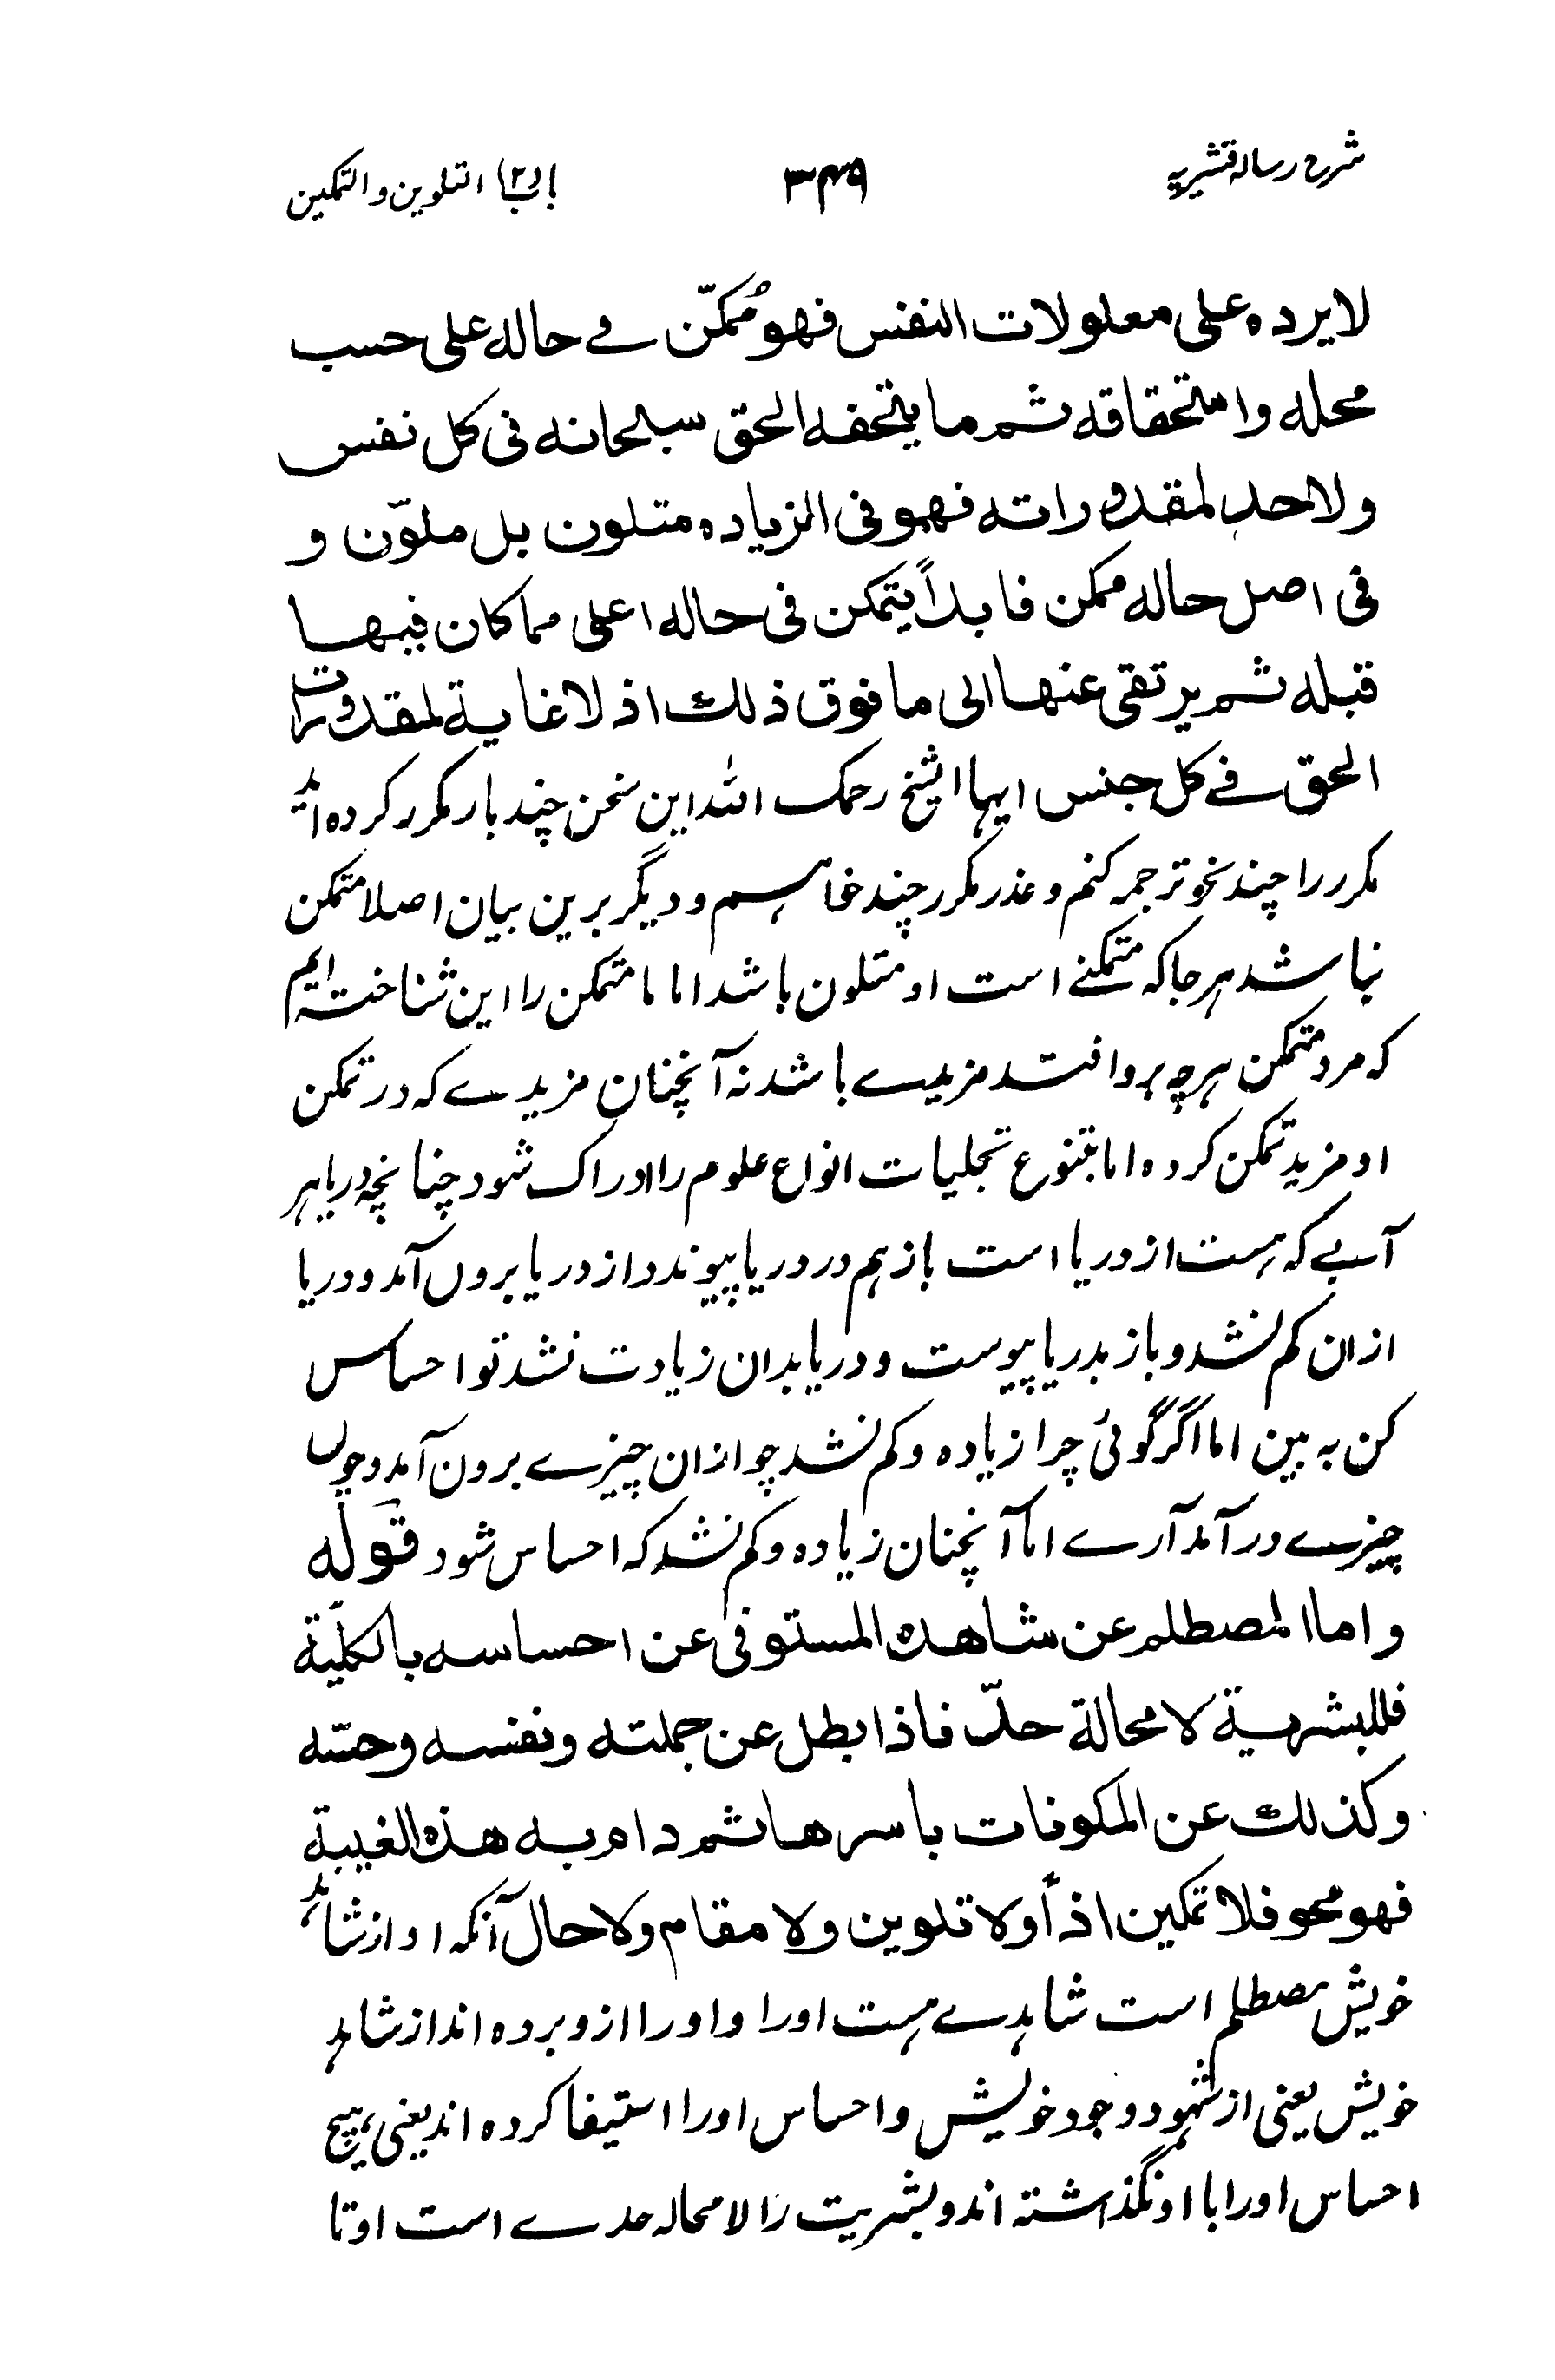 شرح رسالہ قشیریہ
۳۴۹
باب (۲) التلوین والتمکین
لا یردہ علی معلولات النفس فھو مُمکّن فے حالہ علی حسب
محلہ واستحقاقہ ثم ما یتحفہ الحق سبحانہ فی کل نفس
ولا حد لمقدوراتہ فھو فی الزیادہ متلون بل ملوّن و
فی اصل حالہ ممکن فابداً یتمکن فی حالہ اعلی مما کان فیھا
قبلہ ثم یرتقی عنھا الی ما فوق ذلک اذ لا غایۃ لمقدورات
الحق فے کل جنس ایہا الشیخ رحمک اللہ این سخن چند بار مکرر کردہ اند
مکرر را چند نحو ترجمہ کنم و عذر مکرر چند خواہم و دیگر برین بیان اصلا متمکن
نباشد ہر جا کہ متمکنے است او متلون باشد اما ما متمکن را این شناختہ ایم
کہ مرد متمکن ہرچہ بروافتد مزیدے باشد نہ آنچنان مزیدے کہ در تمکن
او مزید تمکن کردہ اما بتنوع تجلیات انواع علوم را ادراک شود چنانچہ دریا ہر
آبے کہ ہست از دریا است باز ہم در دریا پیوندد از دریا بروں آمد و دریا
ازان کم نشد و باز بدریا پیوست و دریا بدان زیادت نشد تو احساس
کن بہ بین اما اگر گوئی چرا زیادہ و کم نشد چو ازان چیزے برون آمد و چوں
چیزے درآمد آرے اما آنچنان زیادہ و کم نشد کہ احساس شود قولہ
واما المصطلم عن شاھدہ المستوفی عن احساسہ بالکلیّۃ
فللبشریۃ لا محالۃ حدّ فاذا بطل عن جملتہ ونفسہ وحسّہ
وکذلک عن المکونات باسرھا ثم دام بہ ھذہ الغیبۃ
فھو محو فلا تمکین اذاً ولا تلوین ولا مقام ولا حال آنکہ او از شاہد
خویش مصطلم است شاہدے ہست اورا و اورا ازو بردہ اند از شاہد
خویش یعنی از شہود وجود خویش و احساس اورا استیفا کردہ اند یعنی ہیچ
احساس اورا با او نگذاشتہ اند و بشریت را لا محالہ حدے است او تا